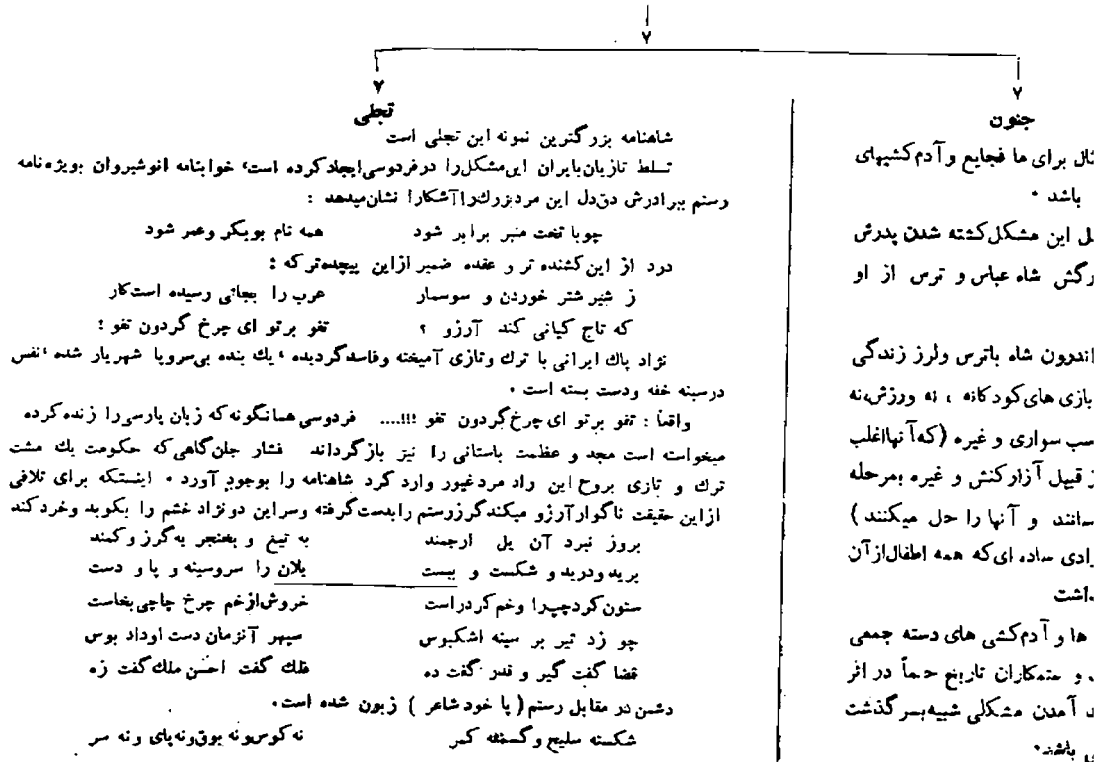 ۷
۷
جنون
ثال برای ما فجایع و آدم کشیهای
باشد ۰
ل این مشکل کشته شدن پدرش
رگش شاه عباس و ترس از او
اندرون شاه باترس ولرز زندگی
بازی های کودکانه ، نه ورزش،نه
سب سواری و غیره (که آنها اغلب
ز قبیل آزارکنش و غیره بمرحله
سانند و آنها را حل میکنند )
رادی ساده ای که همه اطفال از آن
داشت
ها و آدم کشی های دسته جمعی
و ستمکاران تاریخ حتماً در اثر
د آمدن مشکلی شبیه بسر گذشت
باشند۰
۷
تجلی
شاهنامه بزرگترین نمونه این تجلی است
تسلط تازیان بایران این مشکل را در فردوسی ایجاد کرده است، خوابنامه انوشیروان بویژه نامه
رستم ببرادرش دق دل این مرد بزرگ را آشکارا نشان میدهد :
چوبا تخت منبر برابر شود همه نام بوبکر وعمر شود
درد از این کشنده تر و عقده ضمیر از این پیچیده تر که :
ز شیر شتر خوردن و سوسمار عرب را بجائی رسیده است کار
که تاج کیانی کند آرزو ؟ تفو بر تو ای چرخ گردون تفو :
نژاد پاك ایرانی با ترك وتازی آمیخته وفاسد گردیده ، یك بنده بی سروپا شهریار شده ،نفس
درسینه خفه ودست بسته است ۰
واقعاً : تفو بر تو ای چرخ گردون تفو !!!.... فردوسی همانگونه که زبان پارسی را زنده کرده
میخواسته است مجد و عظمت باستانی را نیز باز گرداند فشار جان گاهی که حکومت یك مشت
ترك و تازی بروح این راد مرد غیور وارد کرد شاهنامه را بوجود آورد ۰ اینستکه برای تلافی
از این حقیقت ناگوار آرزو میکند گرز رستم را بدست گرفته وسر این دونژاد خشم را بکوبد وخرد کند
بروز نبرد آن یل ارجمند به تیغ و بخنجر به گرز و کمند
برید ودرید و شکست و ببست یلان را سروسینه و پا و دست
ستون کرد چپ را وخم کرد راست خروش از خم چرخ چاچی بخاست
چو زد تیر بر سینه اشکبوس سپهر آنزمان دست او داد بوس
قضا گفت گیر و قدر گفت ده فلك گفت احسن ملك گفت زه
دشمن در مقابل رستم ( یا خود شاعر ) زبون شده است۰
شکسته سلیح و گسسته کمر نه کوس ونه بوق ونه پای و نه سر